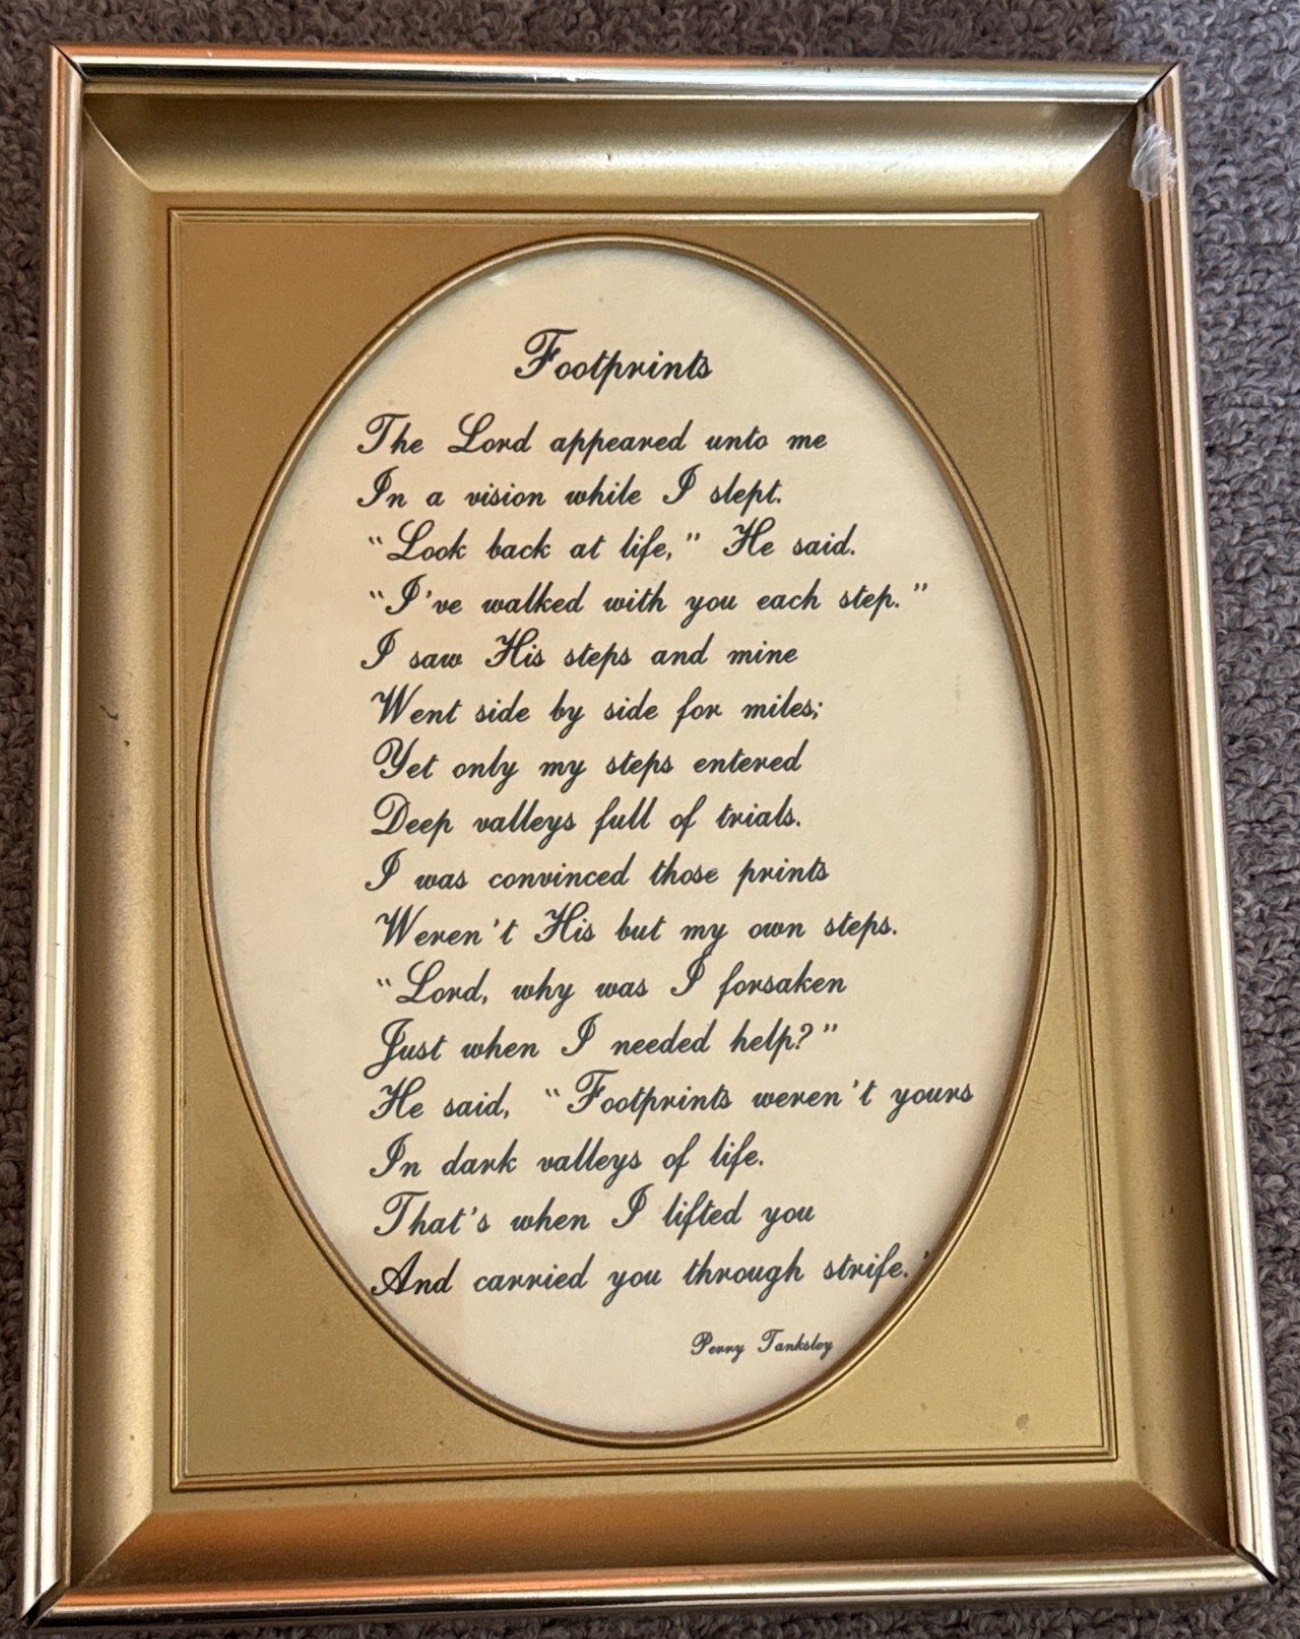 Footprints
The Lord appeared unto me
In a vision while I slept.
"Look back at life," He said.
"I've walked with you each step."
I saw His steps and mine
Went side by side for miles;
Yet only my steps entered
Deep valleys full of trials.
I was convinced those prints
Weren't His but my own steps.
"Lord, why was I forsaken
Just when I needed help?"
He said, "Footprints weren't yours
In dark valleys of life.
That's when I lifted you
And carried you through strife.'
Perry Tanksley